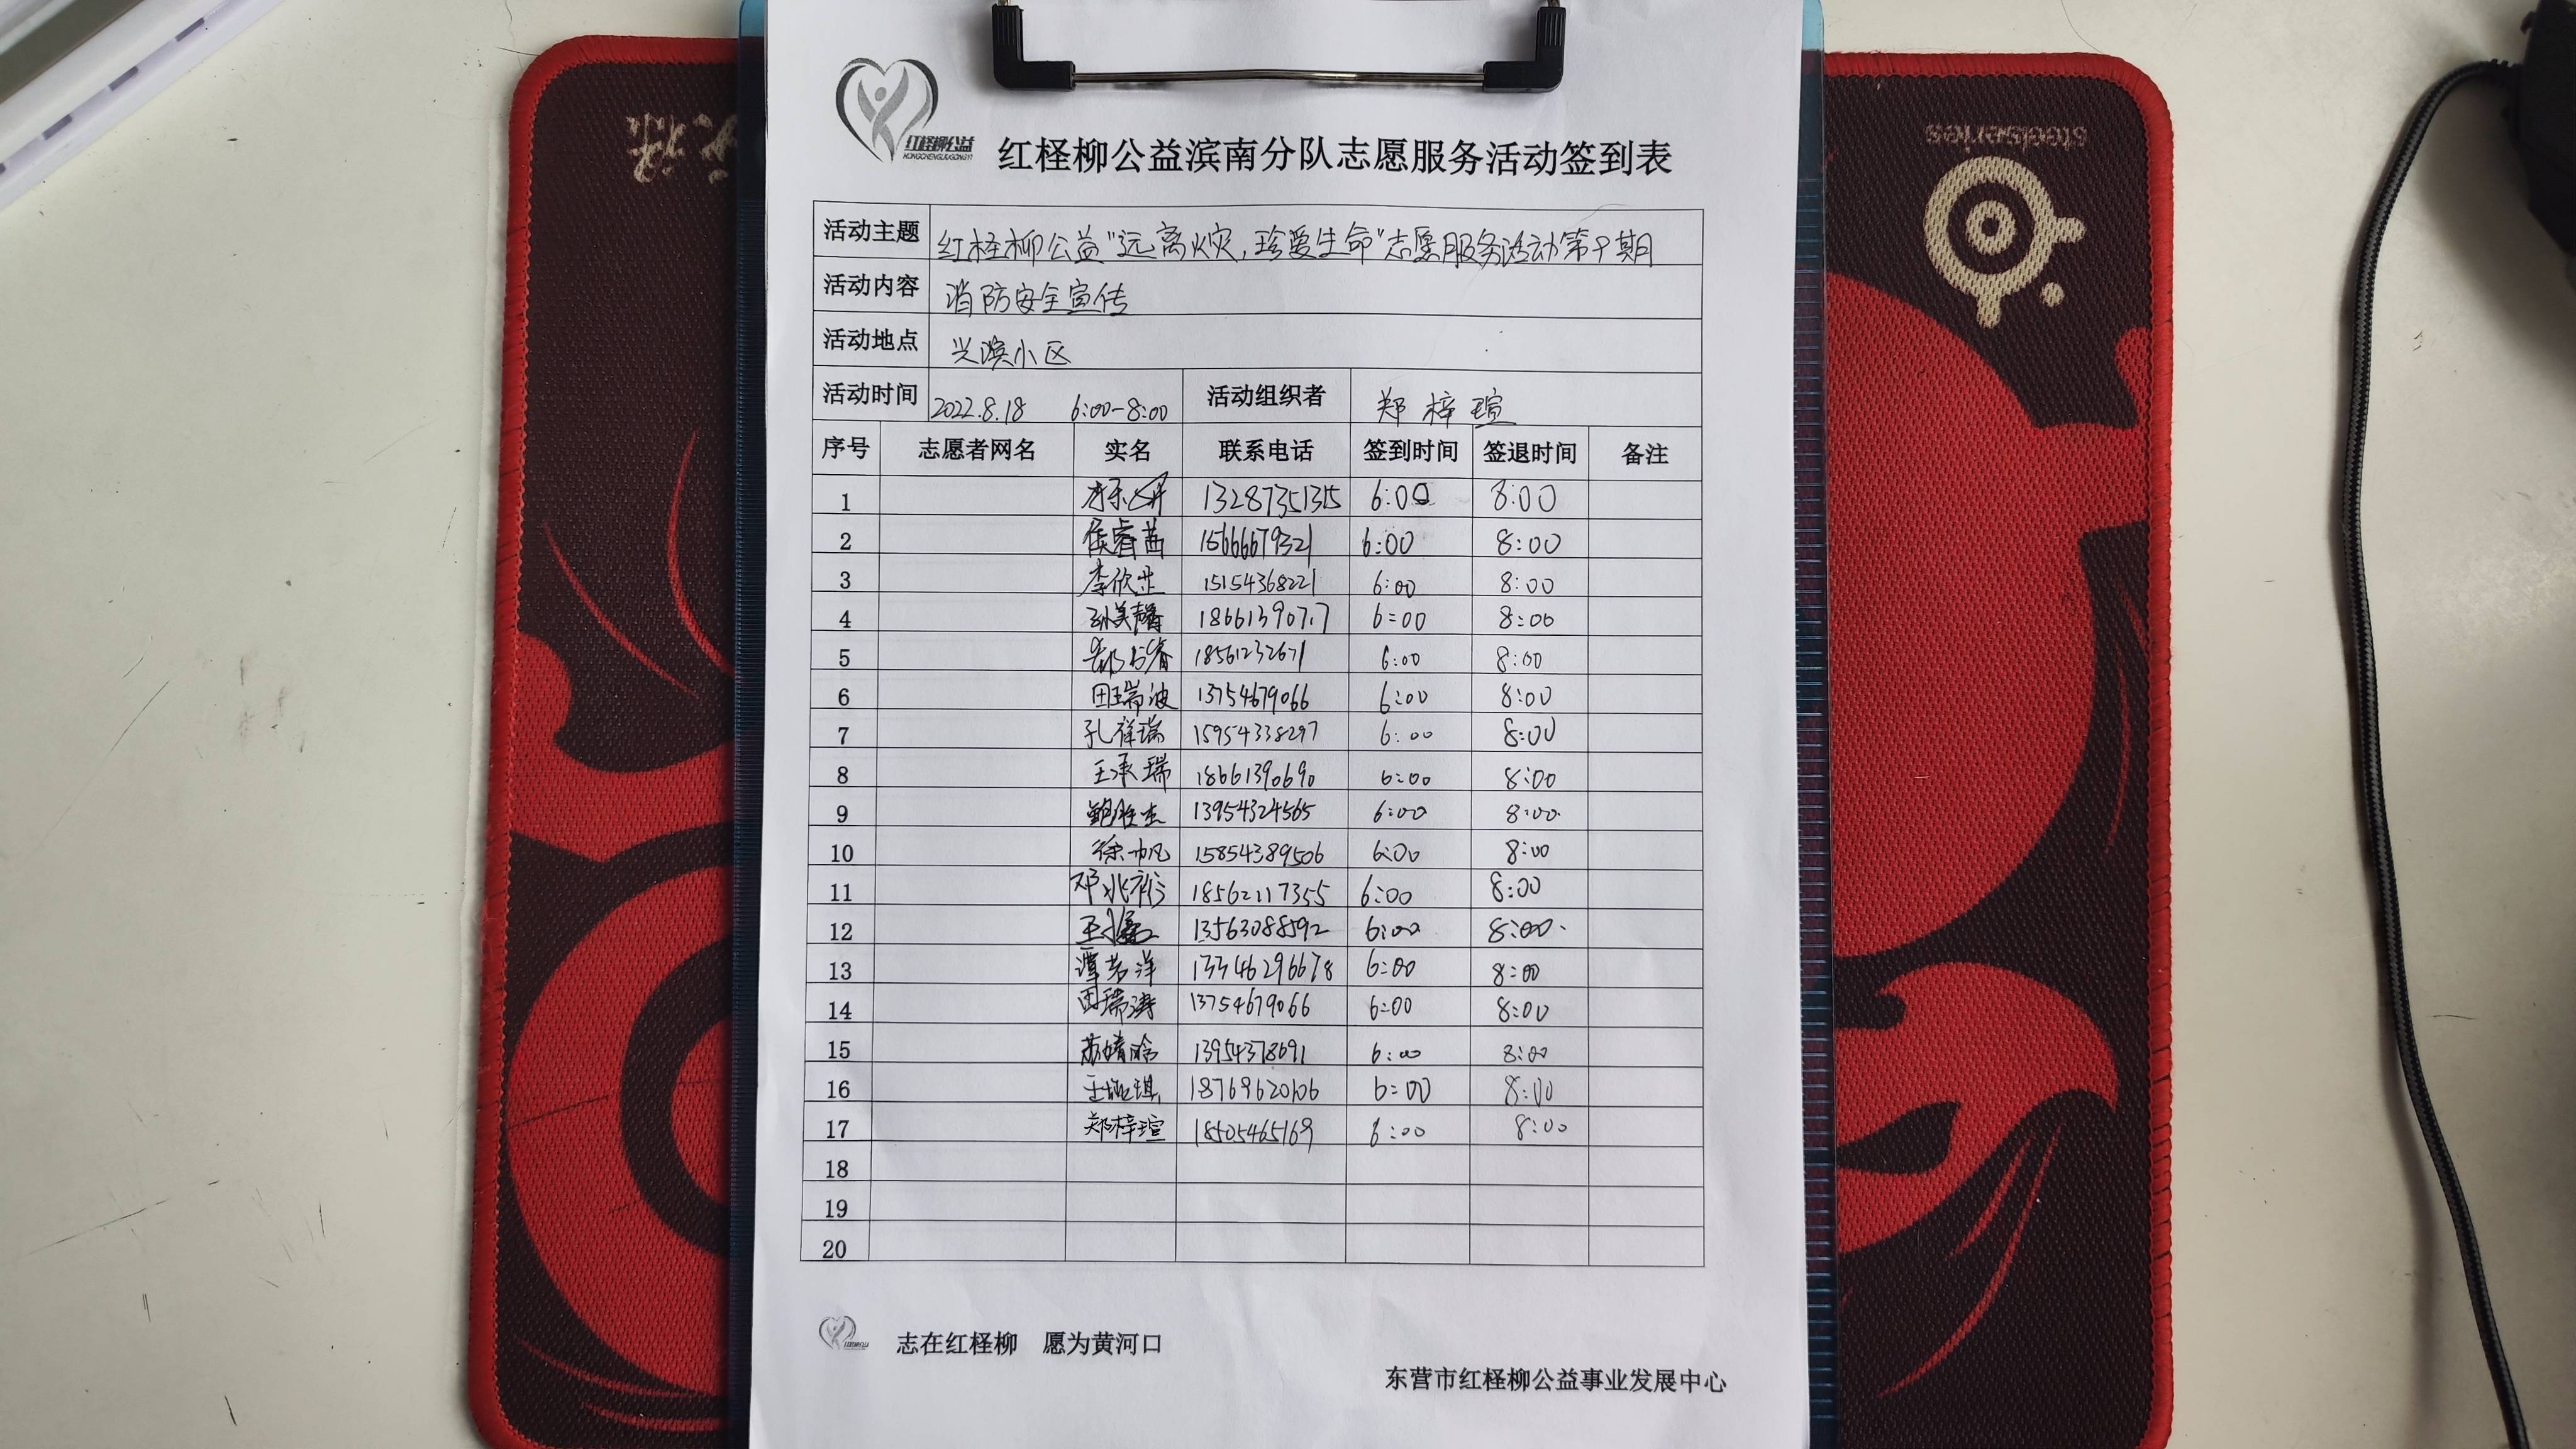 红柽柳公益
HONGCHENGLIUGONGYI
红柽柳公益滨南分队志愿服务活动签到表
steelseries
活动主题 红柽柳公益"远离火灾,珍爱生命"志愿服务活动第十期
活动内容 消防安全宣传
活动地点 兴滨小区
活动时间 2022.8.18 6:00-8:00 活动组织者 郑梓瑄
序号 志愿者网名 实名 联系电话 签到时间 签退时间 备注
1 13287351315 6:00 8:00
2 侯睿茜 15666679321 6:00 8:00
3 李欣芷 15154368221 6:00 8:00
4 孙美馨 18661390717 6:00 8:00
5 18561232671 6:00 8:00
6 田瑞波 13754679066 6:00 8:00
7 孔祥瑞 15954338297 6:00 8:00
8 王承瑞 18661390690 6:00 8:00
9 鲍胜杰 13954324565 6:00 8:00
10 徐帆 15854389506 6:00 8:00
11 邓兆衍 18562117355 6:00 8:00
12 13563088592 6:00 8:00
13 谭芳洋 13346296678 6:00 8:00
14 田瑞涛 13754679066 6:00 8:00
15 苏婧晗 13954378691 6:00 8:00
16 18769620106 6:00 8:00
17 郑梓瑄 18505465169 6:00 8:00
18
19
20
志在红柽柳 愿为黄河口
东营市红柽柳公益事业发展中心